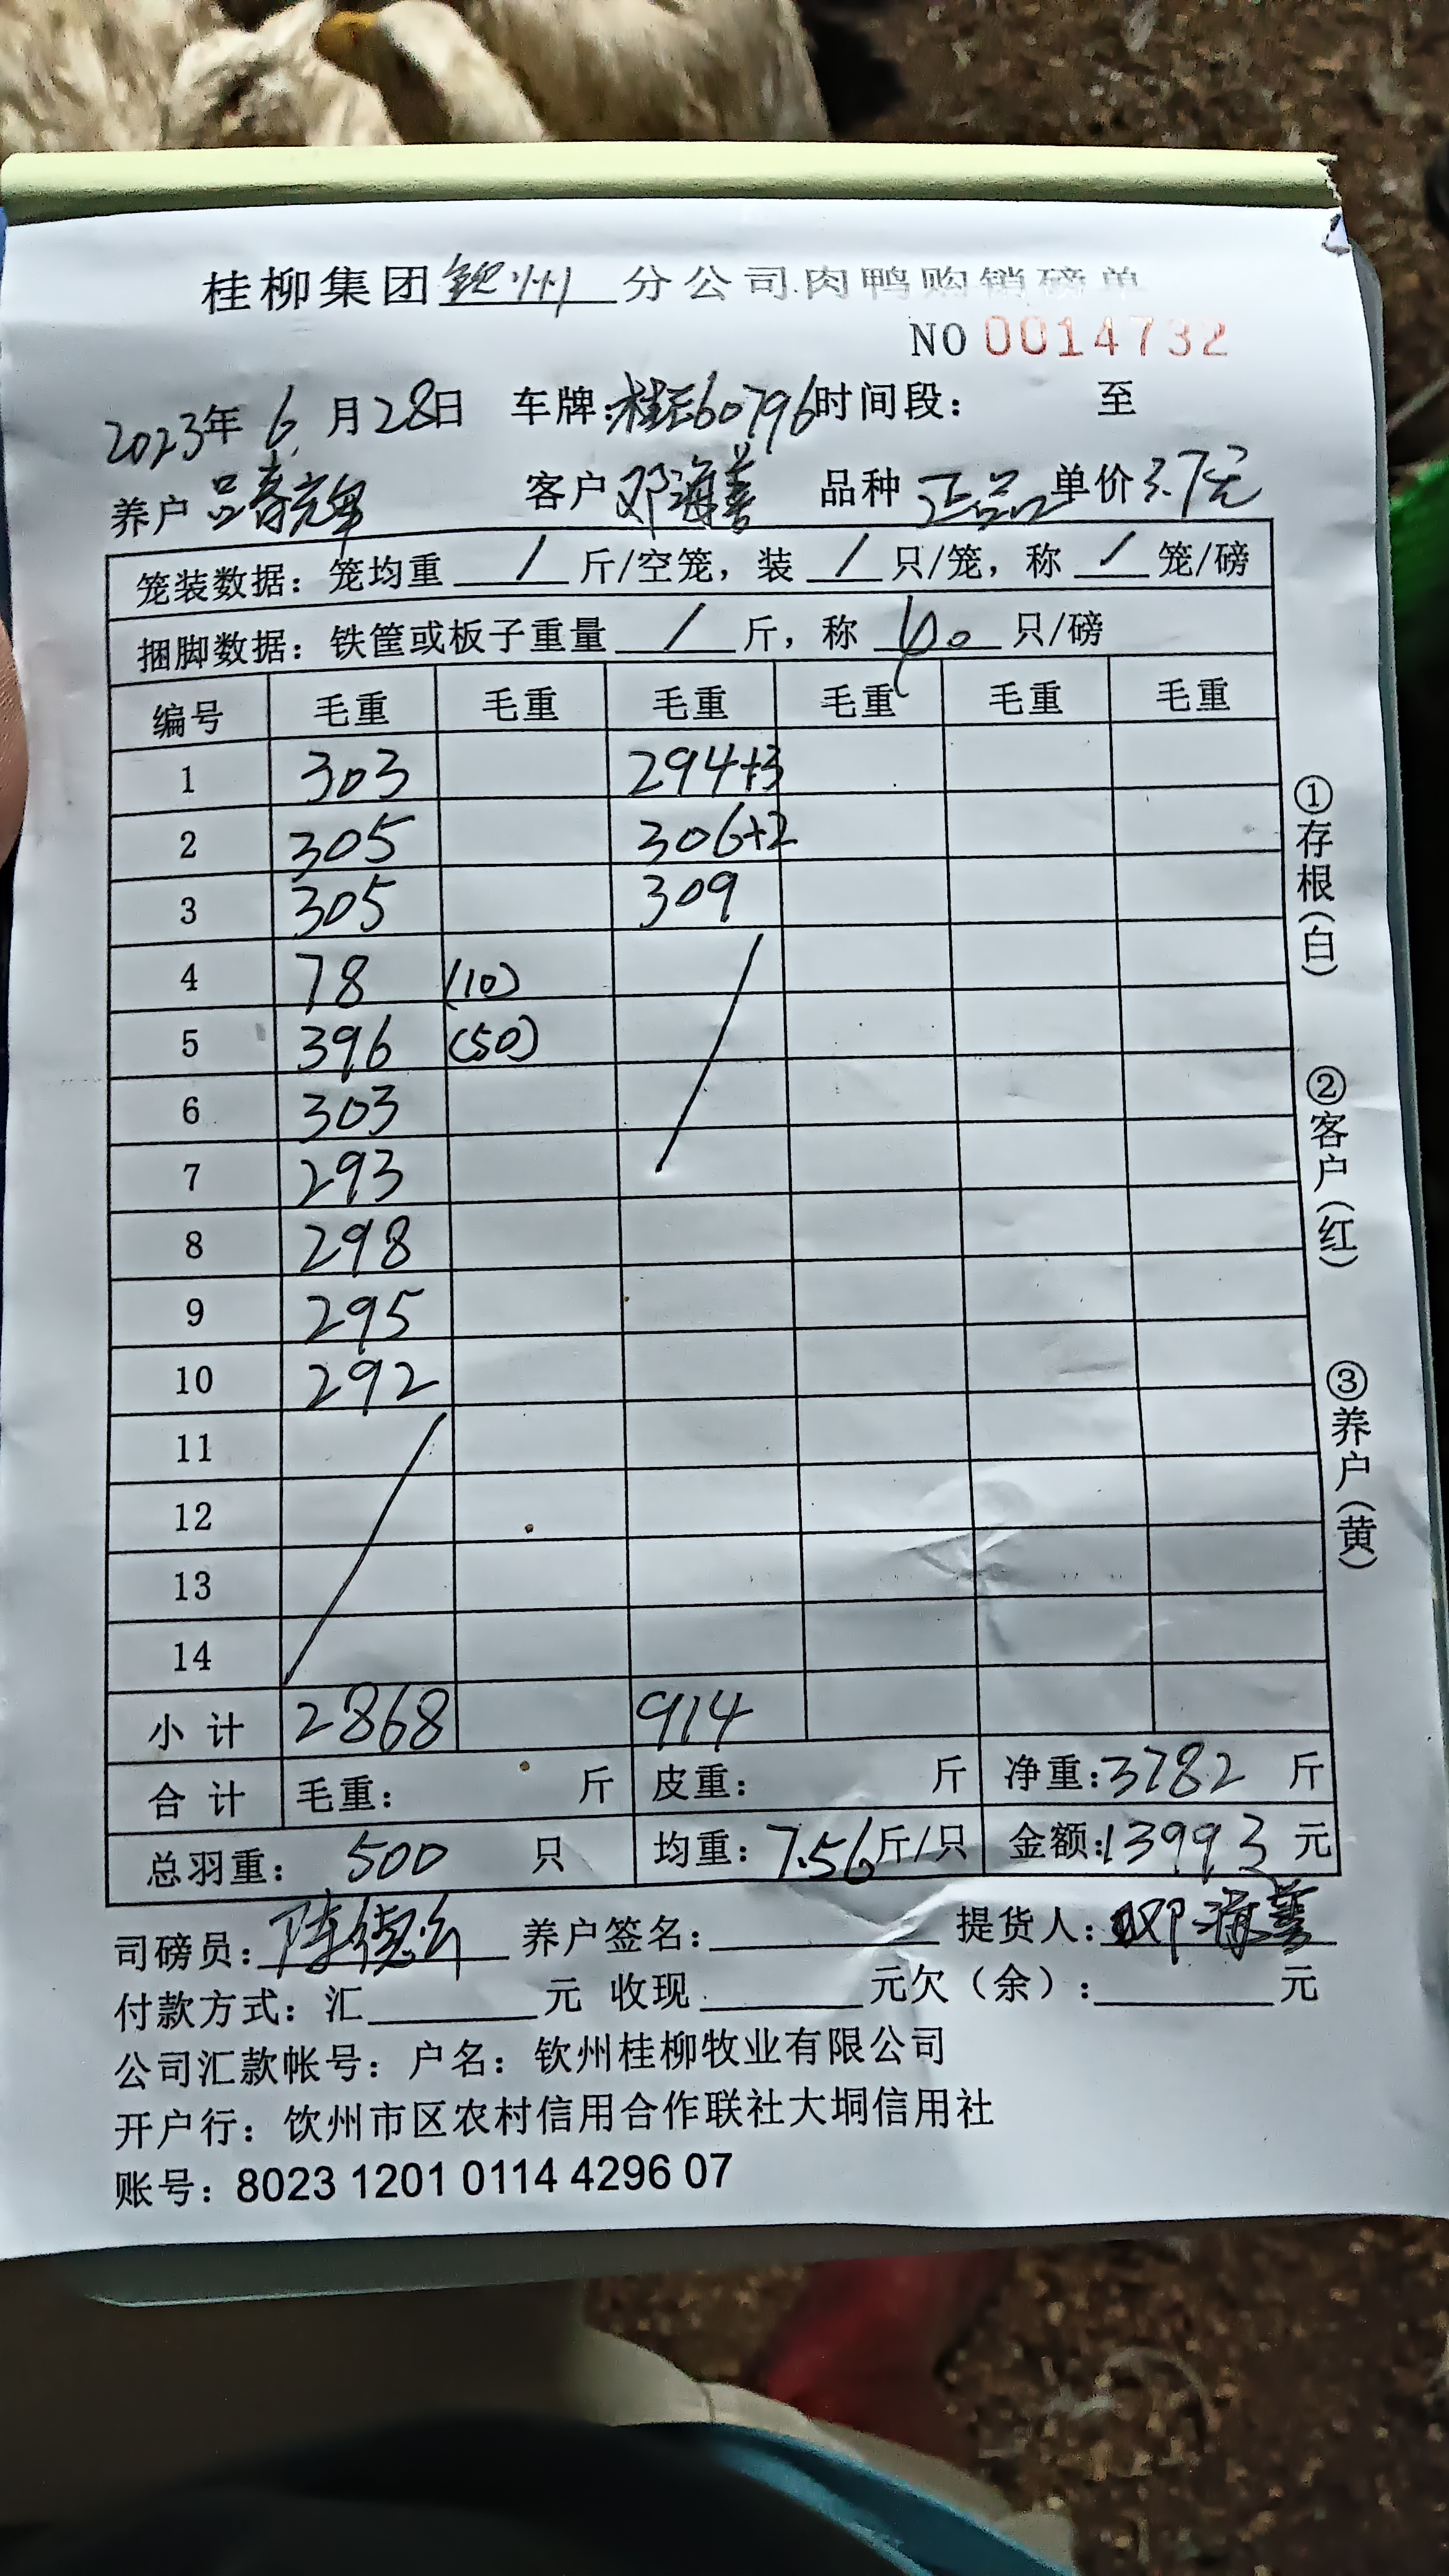 桂柳集团钦州分公司肉鸭购销磅单
NO 0014732
2023年6月28日 车牌:桂E60796时间段: 至
养户 客户邓海善 品种正品单价3.7元
笼装数据:笼均重/斤/空笼,装/只/笼,称/笼/磅
捆脚数据:铁筐或板子重量/斤,称40只/磅
编号 毛重 毛重 毛重 毛重 毛重 毛重
1 303 294+3
2 305 306+2
3 305 309
4 78 (10)
5 396 (50)
6 303
7 293
8 298
9 295
10 292
11
12
13
14
小计 2868 914
合计 毛重: 斤 皮重: 斤 净重:3782 斤
总羽重: 500 只 均重:7.56斤/只 金额:13993元
司磅员:陈德 养户签名: 提货人:邓海善
付款方式:汇 元 收现 元欠(余): 元
公司汇款帐号:户名:钦州桂柳牧业有限公司
开户行:饮州市区农村信用合作联社大垌信用社
账号:8023 1201 0114 4296 07
①存根(白)
②客户(红)
③养户(黄)